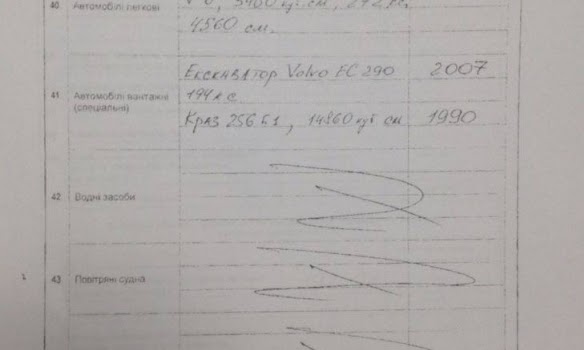 40. Автомобілі легкові
4560 см.
Екскаватор Volvo EC 290 2007
194 к с
41. Автомобілі вантажні
(спеціальні)
Краз 256 Б1, 14860 куб см 1990
42. Водні засоби
43. Повітряні судна